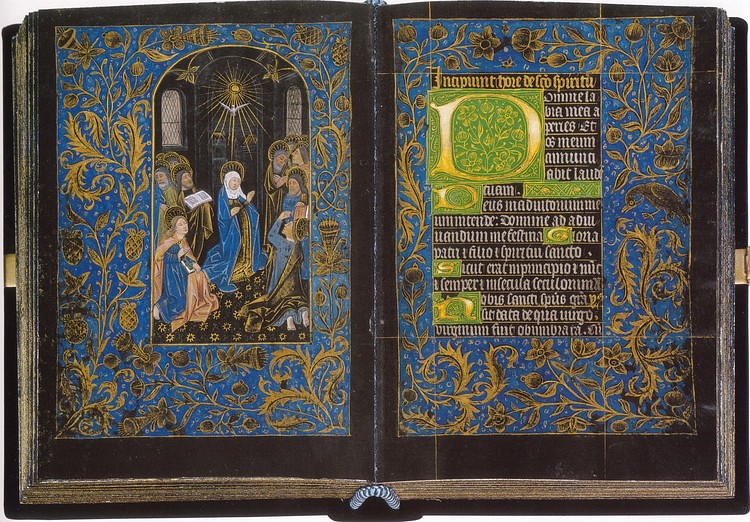 Incipiunt hore de sco spiritu
Domine la
bia mea a
peries Et
os meum
annunci
abit laud
tuam.
Deus in adiutorium me
um intende: Domine ad adiu
uandum me festina Gloria
patri & filio & spiritui sancto
Sicut erat in principio & nuc
& semper & in secula seculorum A
Nobis sancti spus gra
sit data de qua virgo
virginum fuit obumbrata.